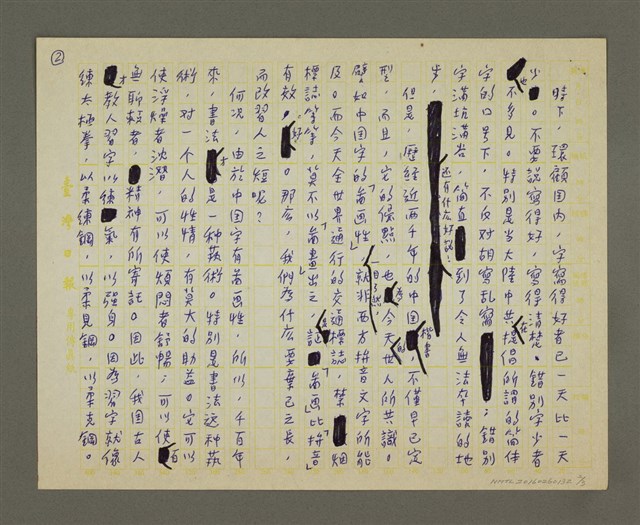 ②
時下，環顧国内，字寫得好者已一天比一天
少。不要説寫得好，寫得清楚。錯別字少者
也不多見。特別是当大陸中共在提倡所謂的简体
字的口号下，不反对胡寫乱寫；錯別
字滿坑滿谷，简直到了令人無法卒讀的地
步，还有什么好説？
但是，歷经近两千年的中国楷書，不僅早已定
型，而且，它的優點，也為今天世人所共識。
譬如中国字的「畵画性」就非西方拼音文字所能
及。而今天全世界通行的交通標誌，禁烟
標誌等等，莫不以「畵畫」出之，証「畵画」比「拼音」
有效。那么，我們為什么要棄己之長，
而改習人之短呢？
何况，由於中国字有畵画性，所以，千百年
來，書法才是一种藝術。特別是書法这种藝
術，对一个人的性情，有莫大的助益。它可以
使浮燥者沈潜，可以使煩悶者舒暢，可以使百
無聊頼者，精神有所寄託。因此，我国古人
才教人習字以練氣，以强身。因為習字就像
練太極拳，以柔練鋼，以柔見鋼，以柔克鋼。
臺灣日報
NMTL20160060132 2/3